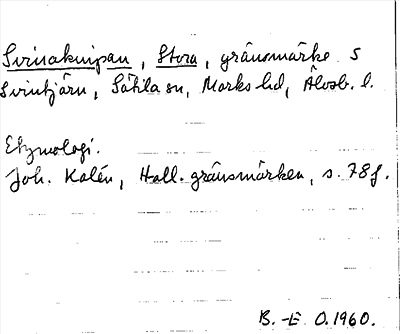 Svinaknipan, Stora, gränsmärke S
Svintjärn, Sätila sn, Marks hd, Älvsb. l.
Etymologi.
Joh. Kalén, Hall. gränsmärken, s. 78f.
B.-E. O. 1960.